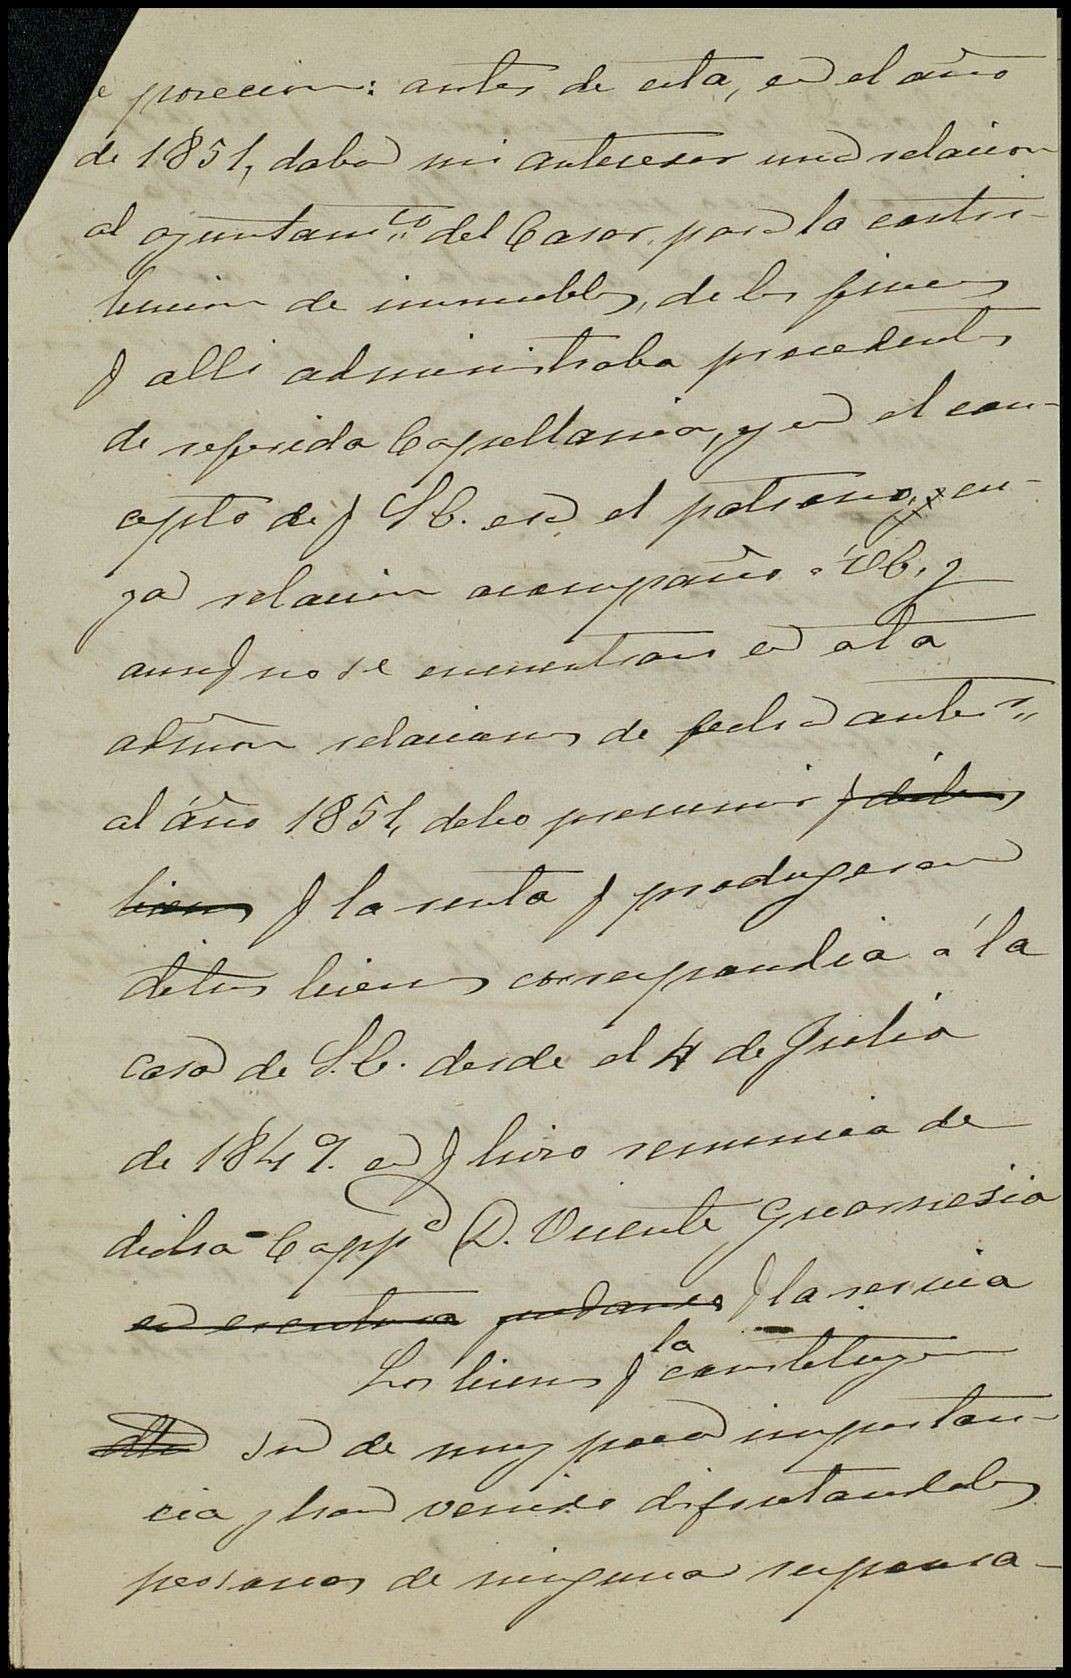 e posecion: antes de esta, en el año
de 1851, daba mi antecesor una relacion
al ayuntamto del Casar, para la contri-
bucion de inmuebles, de las fincas
q alli administraba procedentes
de referida Capellania, y en el con-
cepto de q S.E. era el patrono, cu-
ya relacion acompaño a VE. y
aunq no se encuentran en esta
admon relaciones de fecha anterr
al año 1851, debo presumir q dichos
bienes q la renta q produgeran
dichos bienes correspondia á la
casa de S.E. desde el 4 de Julio
de 1849. en q hizo renuncia de
dicha Cappa D. Vicente Guarnesio
en escritura q la servia
Los bienes q la constituyen
son de muy poca importan-
cia y han venido disfrutandolos
personas de ninguna responsa-